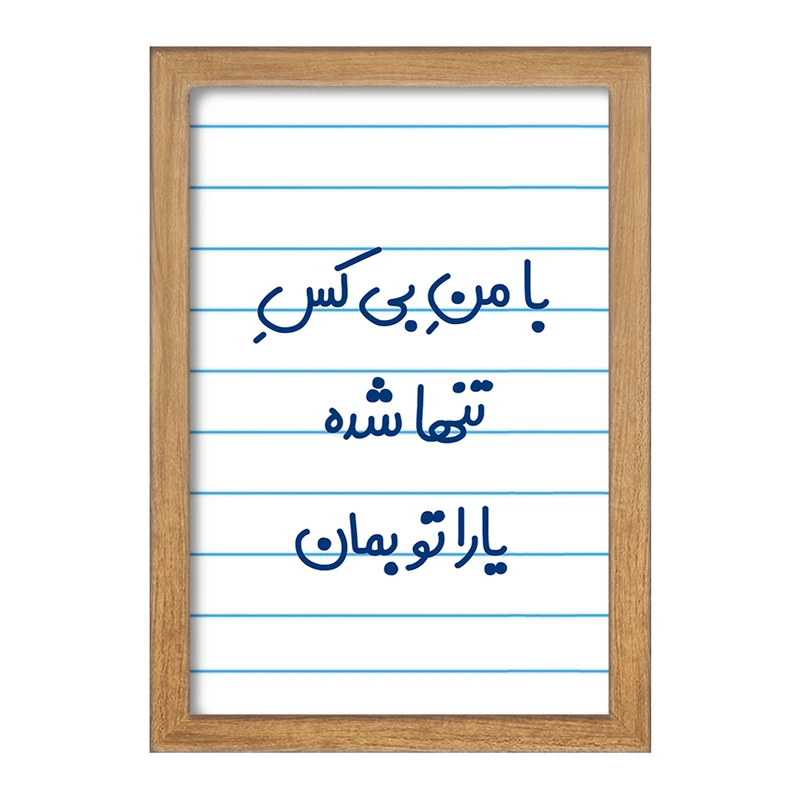 با منِ بی کسِ
تنها شده
یارا تو بمان